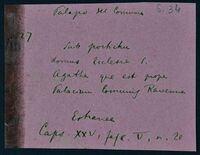 Palazzo del Comune S. 34
27
Sub porticu
domus Ecclesie S.
Agathe que est prope
Palacium Comunis Ravenne
Estravea
Caps. XXV, fasc. V, n. 20